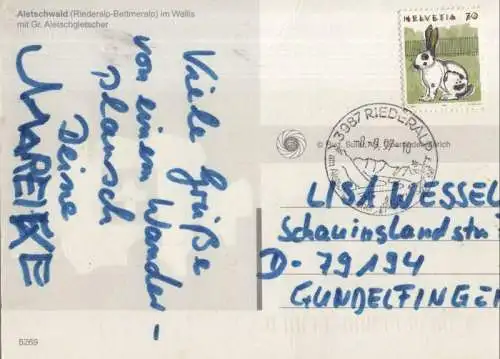 Aletschwald (Riederalp-Bettmeralp) im Wallis
mit Gr. Aletschgletscher
HELVETIA 70
3987 RIEDERALP
Viele Grüße
von einem Wander-
plausch
Deine
MAREIKE
LISA WESSEL
Schauinslandstr
D-79194
GUNDELFINGEN
5269